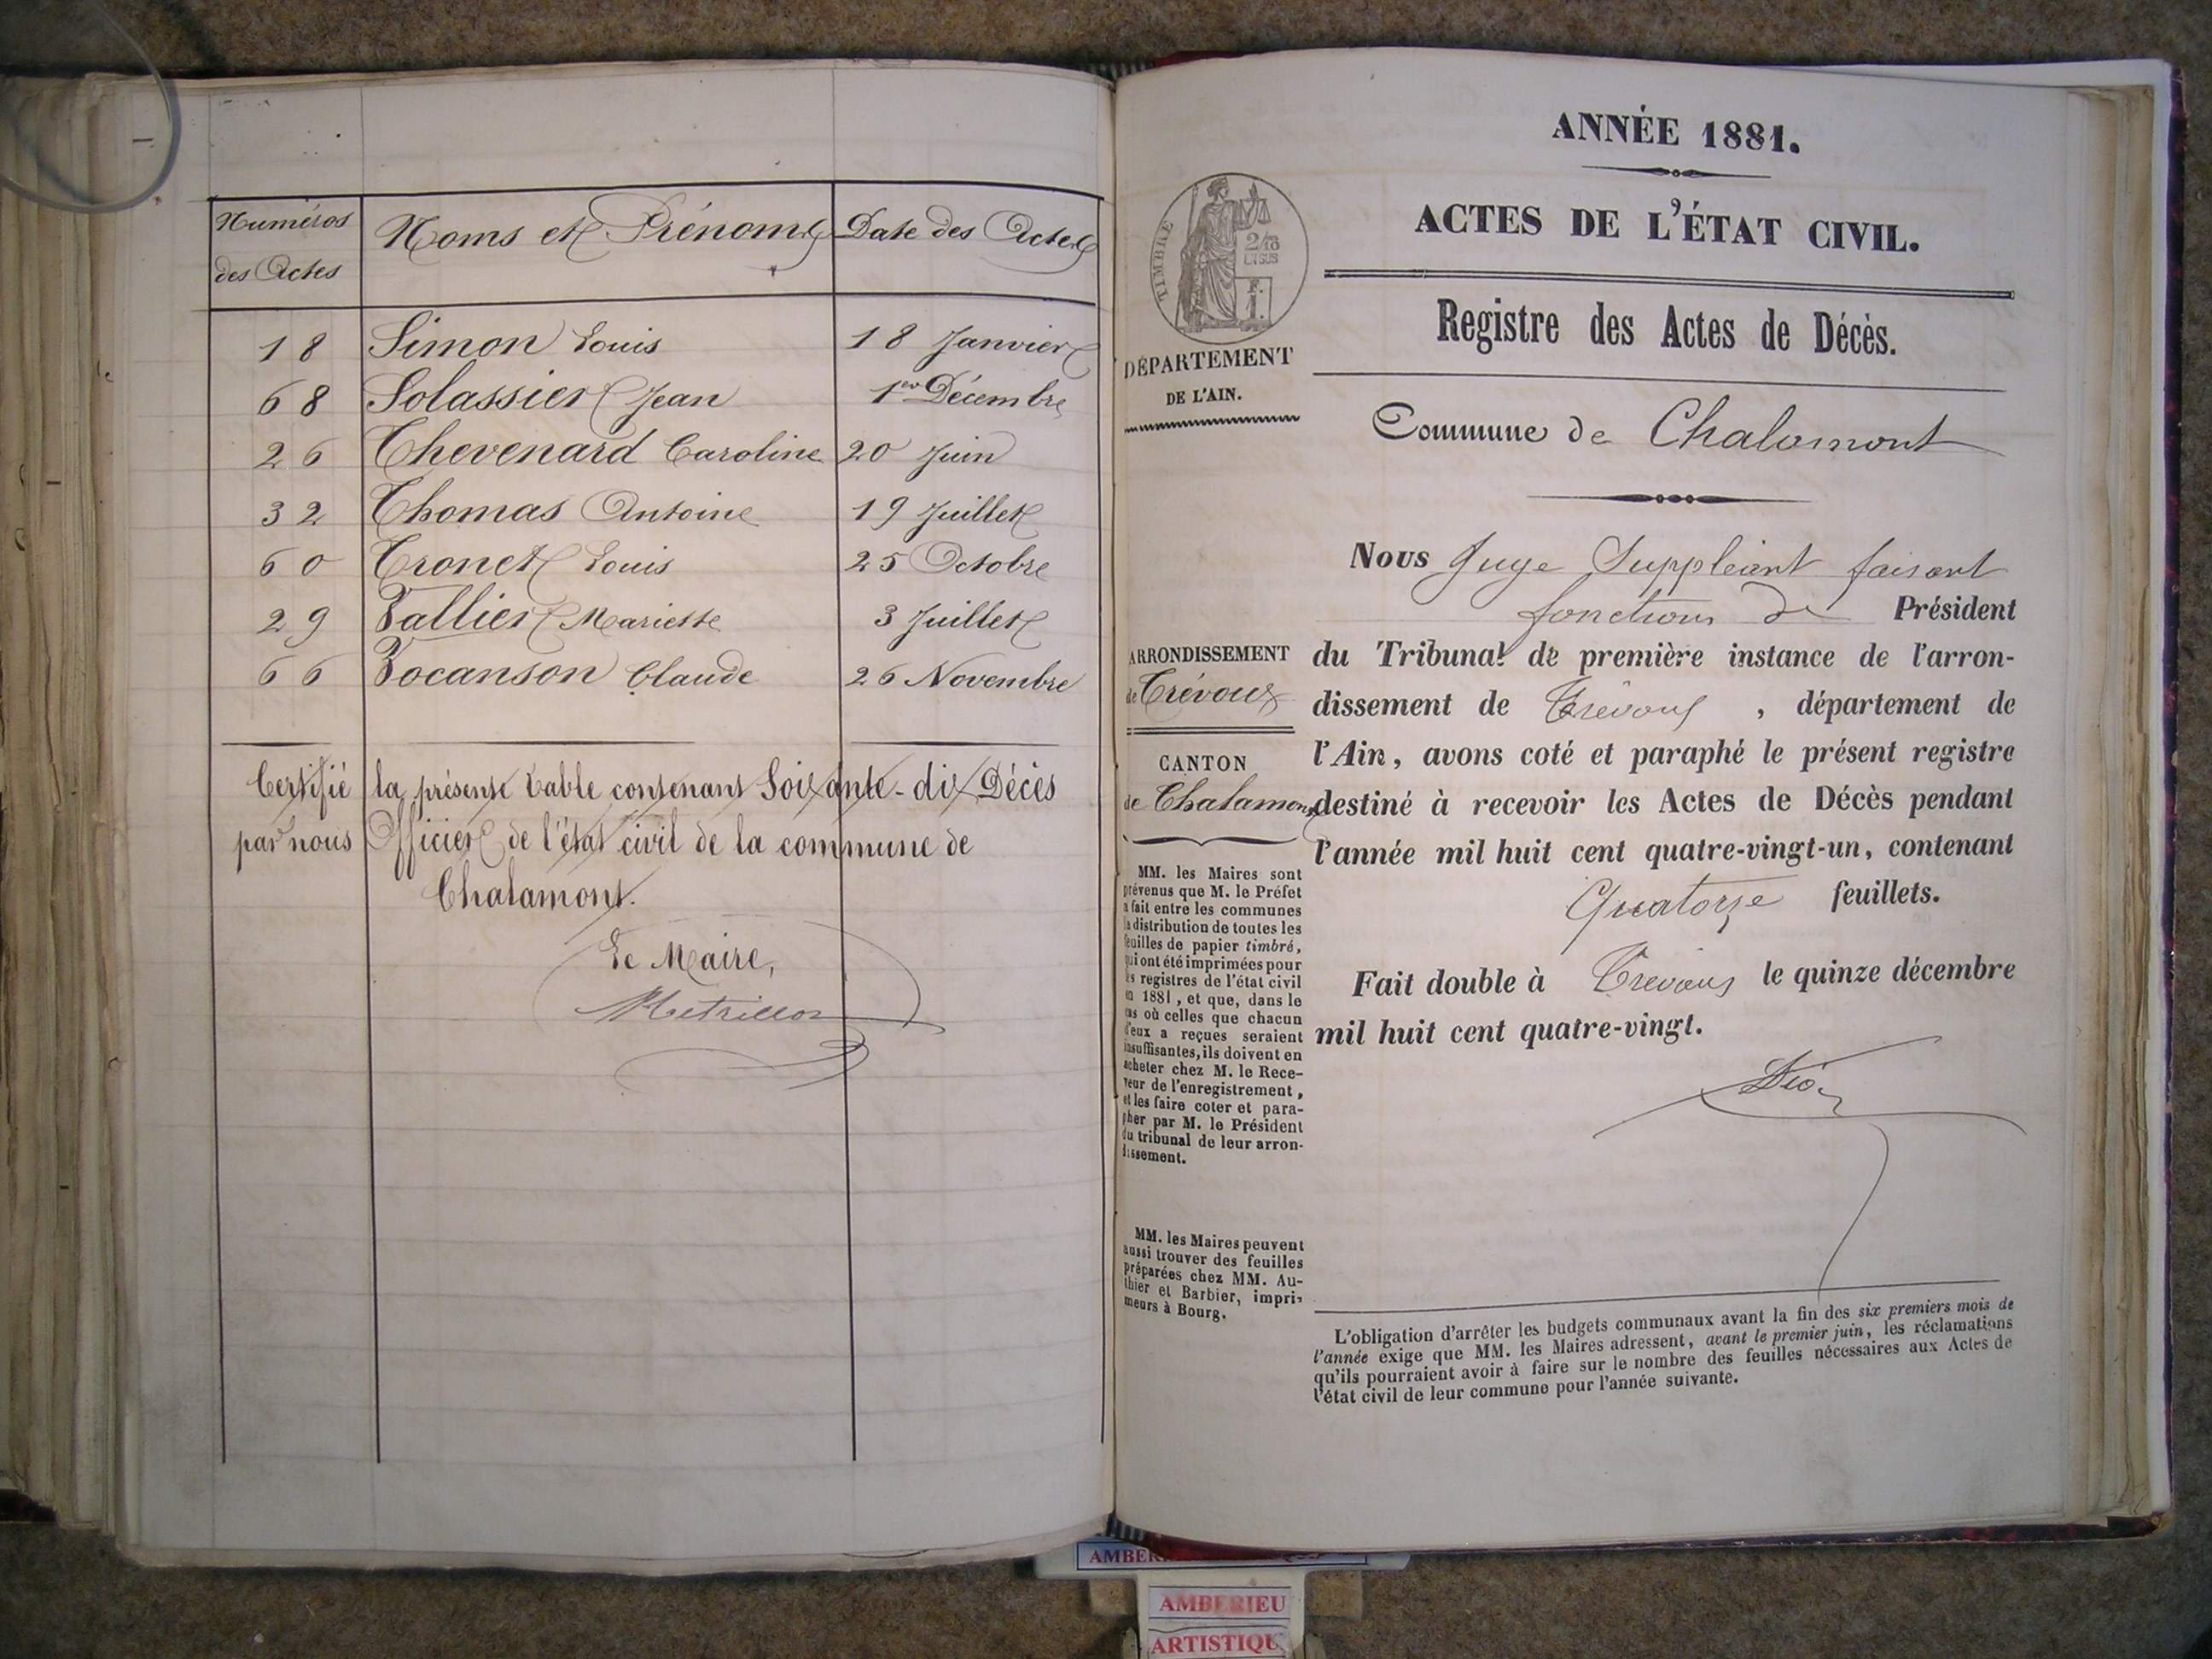 Numéros des Actes | Noms et Prénoms | Date des Actes
18 | Simon Louis | 18 Janvier
68 | Solassier Jean | 1er Décembre
26 | Thevenard Caroline | 20 Juin
32 | Thomas Antoine | 19 Juillet
60 | Tronet Louis | 25 Octobre
29 | Vallier Mariette | 3 Juillet
66 | Vocanson Claude | 26 Novembre
Certifié la présente table contenant Soixante-dix Décès
par nous Officier de l'état civil de la commune de
Chalamont.
Le Maire,
ANNÉE 1881.
ACTES DE L'ÉTAT CIVIL.
Registre des Actes de Décès.
TIMBRE
DÉPARTEMENT
DE L'AIN.
Commune de Chalamont
Nous Juge Suppléant faisant
fonctions de Président
du Tribunal de première instance de l'arron-
dissement de Trévoux , département de
l'Ain, avons coté et paraphé le présent registre
destiné à recevoir les Actes de Décès pendant
l'année mil huit cent quatre-vingt-un, contenant
Quatorze feuillets.
Fait double à Trevoux le quinze décembre
mil huit cent quatre-vingt.
ARRONDISSEMENT
de Trévoux
CANTON
de Chalamont
MM. les Maires sont
prévenus que M. le Préfet
a fait entre les communes
la distribution de toutes les
feuilles de papier timbré,
qui ont été imprimées pour
les registres de l'état civil
en 1881, et que, dans le
cas où celles que chacun
d'eux a reçues seraient
insuffisantes, ils doivent en
acheter chez M. le Rece-
veur de l'enregistrement,
et les faire coter et para-
pher par M. le Président
du tribunal de leur arron-
dissement.
MM. les Maires peuvent
aussi trouver des feuilles
préparées chez MM. Au-
thier et Barbier, impri-
meurs à Bourg.
L'obligation d'arrêter les budgets communaux avant la fin des six premiers mois de
l'année exige que MM. les Maires adressent, avant le premier juin, les réclamations
qu'ils pourraient avoir à faire sur le nombre des feuilles nécessaires aux Actes de
l'état civil de leur commune pour l'année suivante.
AMBERIEU
ARTISTIQU